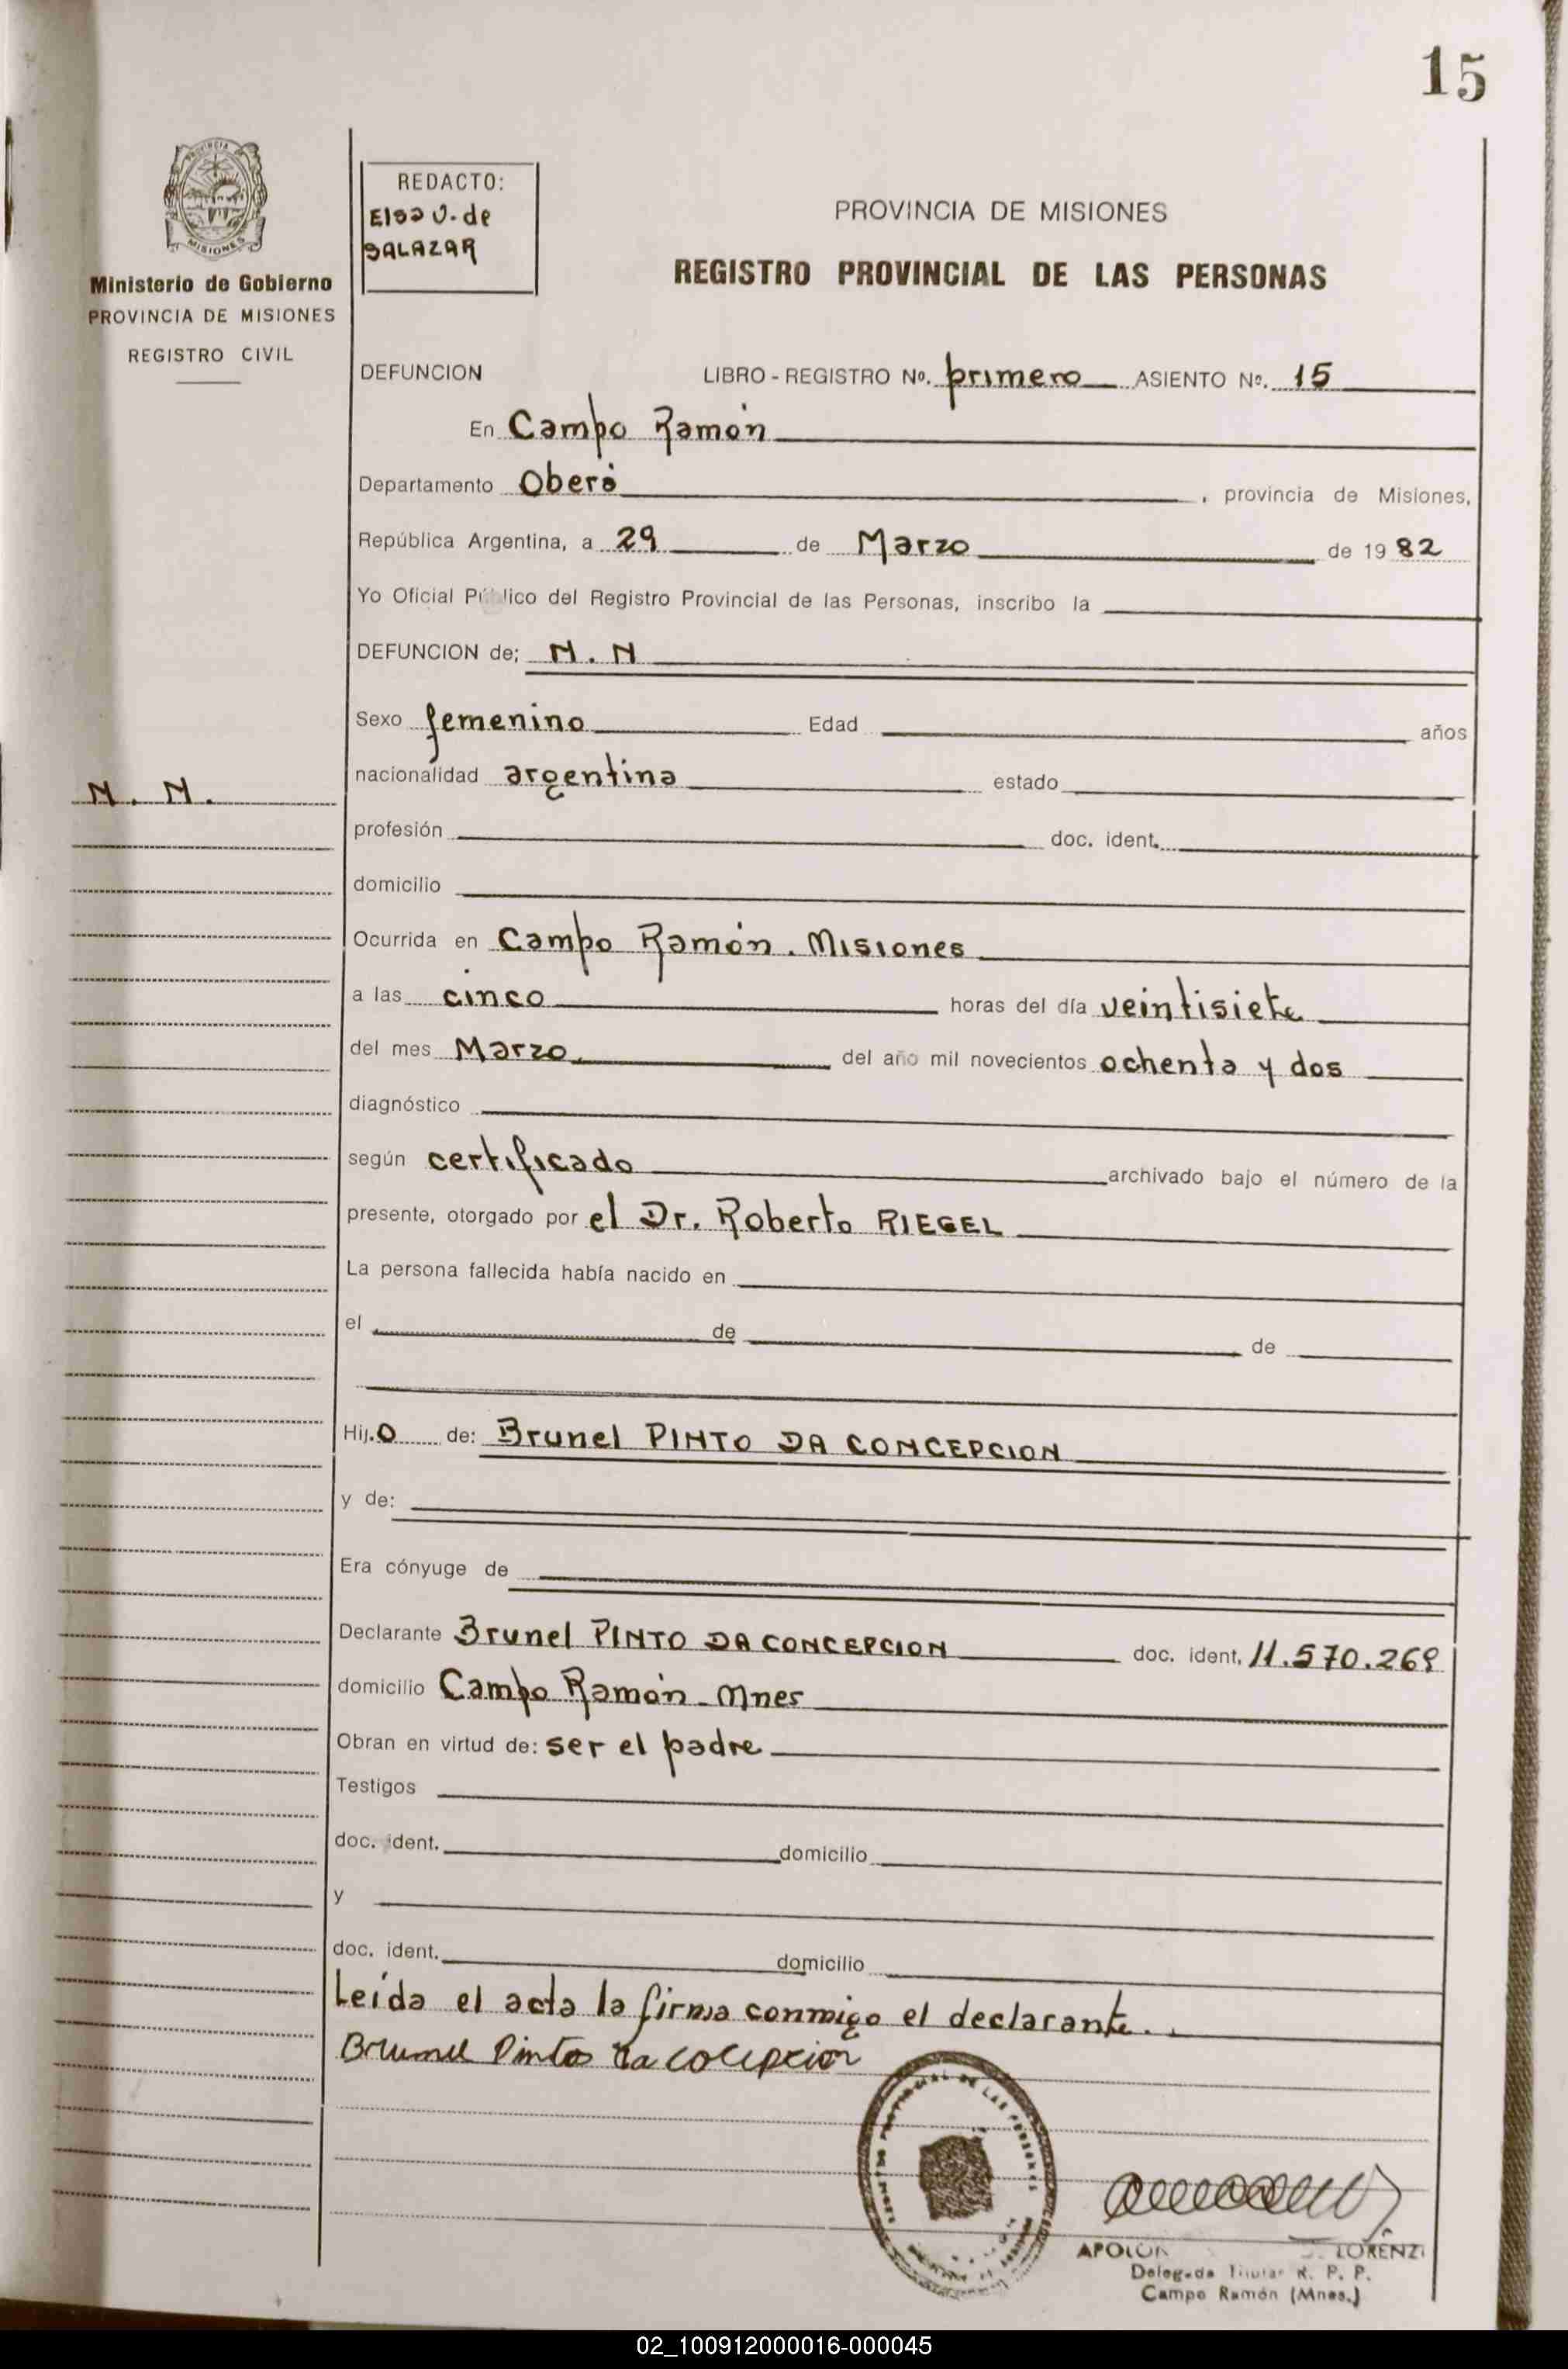 15
PROVINCIA
MISIONES
Ministerio de Gobierno
PROVINCIA DE MISIONES
REGISTRO CIVIL
REDACTO:
Elsa V. de
SALAZAR
PROVINCIA DE MISIONES
REGISTRO PROVINCIAL DE LAS PERSONAS
DEFUNCION LIBRO - REGISTRO Nº. primero ASIENTO Nº. 15
En Campo Ramón
Departamento Oberá, provincia de Misiones,
República Argentina, a 29 de Marzo de 1982
Yo Oficial Público del Registro Provincial de las Personas, inscribo la
DEFUNCION de; N. N
Sexo femenino Edad años
nacionalidad argentina estado
N. N.
profesión doc. ident.
domicilio
Ocurrida en Campo Ramón. Misiones
a las cinco horas del día veintisiete
del mes Marzo. del año mil novecientos ochenta y dos
diagnóstico
según certificado archivado bajo el número de la
presente, otorgado por el Dr. Roberto RIEGEL
La persona fallecida había nacido en
el de de
Hij.o de: Brunel PINTO DA CONCEPCION
y de:
Era cónyuge de
Declarante Brunel PINTO DA CONCEPCION doc. ident. 11.570.269
domicilio Campo Ramón - Mnes
Obran en virtud de: ser el padre
Testigos
doc. ident. domicilio
y
doc. ident. domicilio
Leída el acta la firma conmigo el declarante.
Pinto da
LORENZI
Delegado Titular R. P. P.
Campo Ramón (Mnes.)
02_100912000016-000045